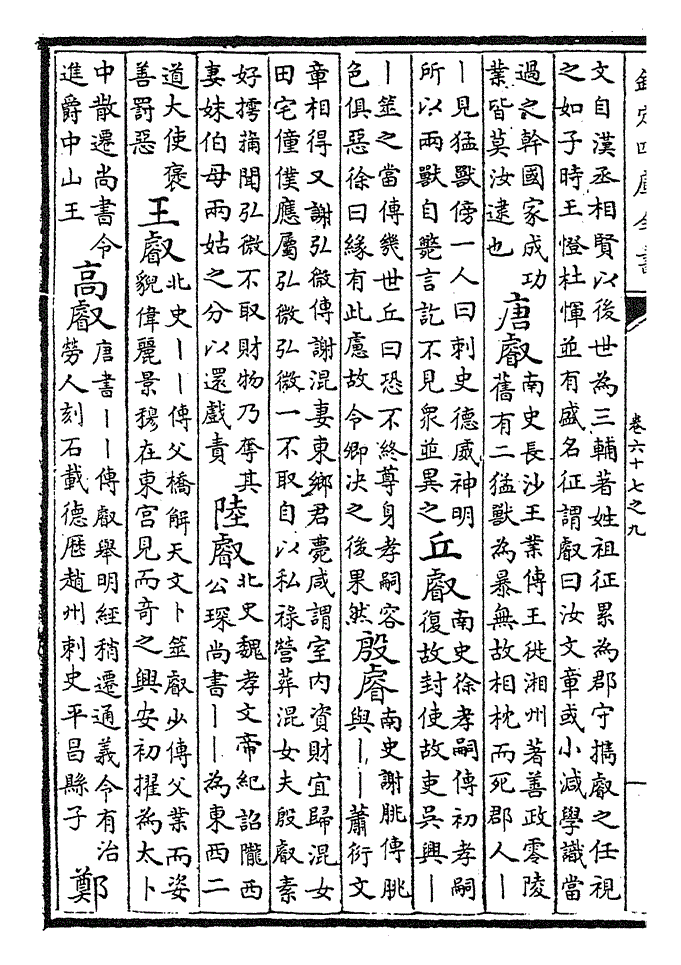 欽定四庫全書
卷六十七之九
文自漢丞相賢以後世為三輔著姓祖征累為郡守攜叡之任視
之如子時王憕杜惲並有盛名征謂叡曰汝文章或小減學識當
過之幹國家成功
業皆莫汝逮也
唐叡
南史長沙王業傳王徙湘州著善政零陵
舊有二猛獸為暴無故相枕而死郡人丨
丨見猛獸傍一人曰刺史德威神明
所以兩獸自斃言訖不見衆並異之
丘叡
南史徐孝嗣傳初孝嗣
復故封使故吏吳興丨
丨筮之當傳幾世丘曰恐不終尊身孝嗣容
色俱惡徐曰緣有此慮故令卿決之後果然
殷睿
南史謝朓傳朓
與丨丨蕭衍文
章相得又謝弘微傳謝混妻東鄉君薨咸謂室內資財宜歸混女
田宅僮僕應屬弘微弘微一不取自以私祿營葬混女夫殷叡素
好摴蒱聞弘微不取財物乃奪其
妻妹伯母兩姑之分以還戲責
陸叡
北史魏孝文帝紀詔隴西
公琛尚書丨丨為東西二
道大使褒
善罰惡
王叡
北史丨丨傳父橋解天文卜筮叡少傳父業而姿
貌偉麗景穆在東宮見而奇之興安初擢為太卜
中散遷尚書令
進爵中山王
高叡
唐書丨丨傳叡舉明經稍遷通義令有治
勞人刻石載德歷趙州刺史平昌縣子
鄭